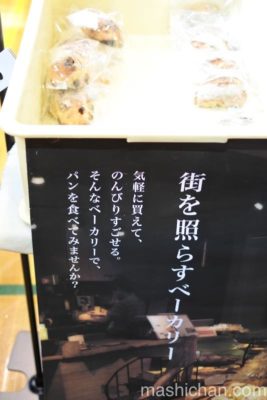 街を照らすベーカリー
気軽に買えて、
のんびりすごせる。
そんなベーカリーで、
パンを食べてみませんか?
mashichan.com